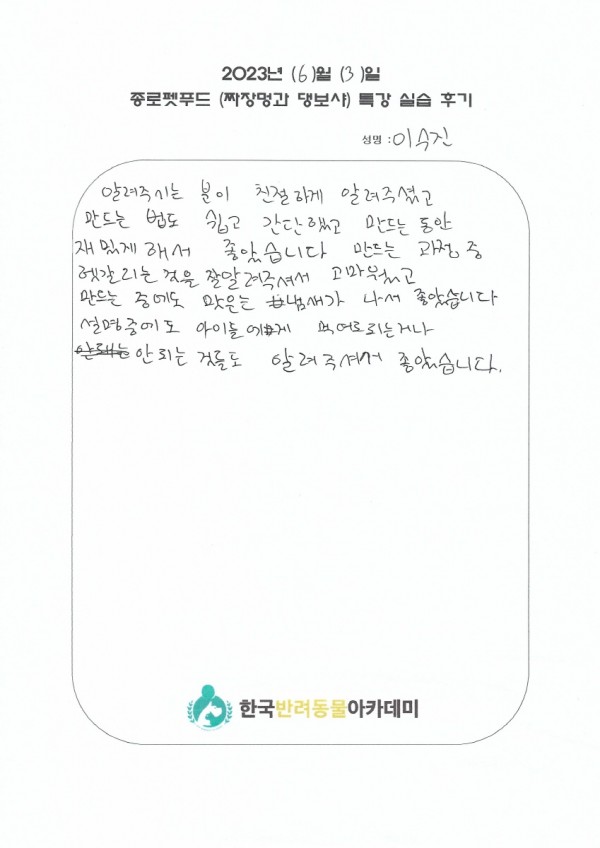 2023년 (6)월 (3)일
종로펫푸드 (짜장멍과 댕보샤) 특강 실습 후기
성명 : 이수진
알려주시는 분이 친절하게 알려주셨고
만드는 법도 쉽고 간단했고 만드는 동안
재밌게 해서 좋았습니다 만드는 과정 중
헷갈리는 것을 잘알려주셔서 고마웠고
만드는 중에도 맛은는 냄새가 나서 좋았습니다
설명중에도 아이들에게 먹여도되는거나
안되는 것들도 알려주셔서 좋았습니다.
한국반려동물아카데미